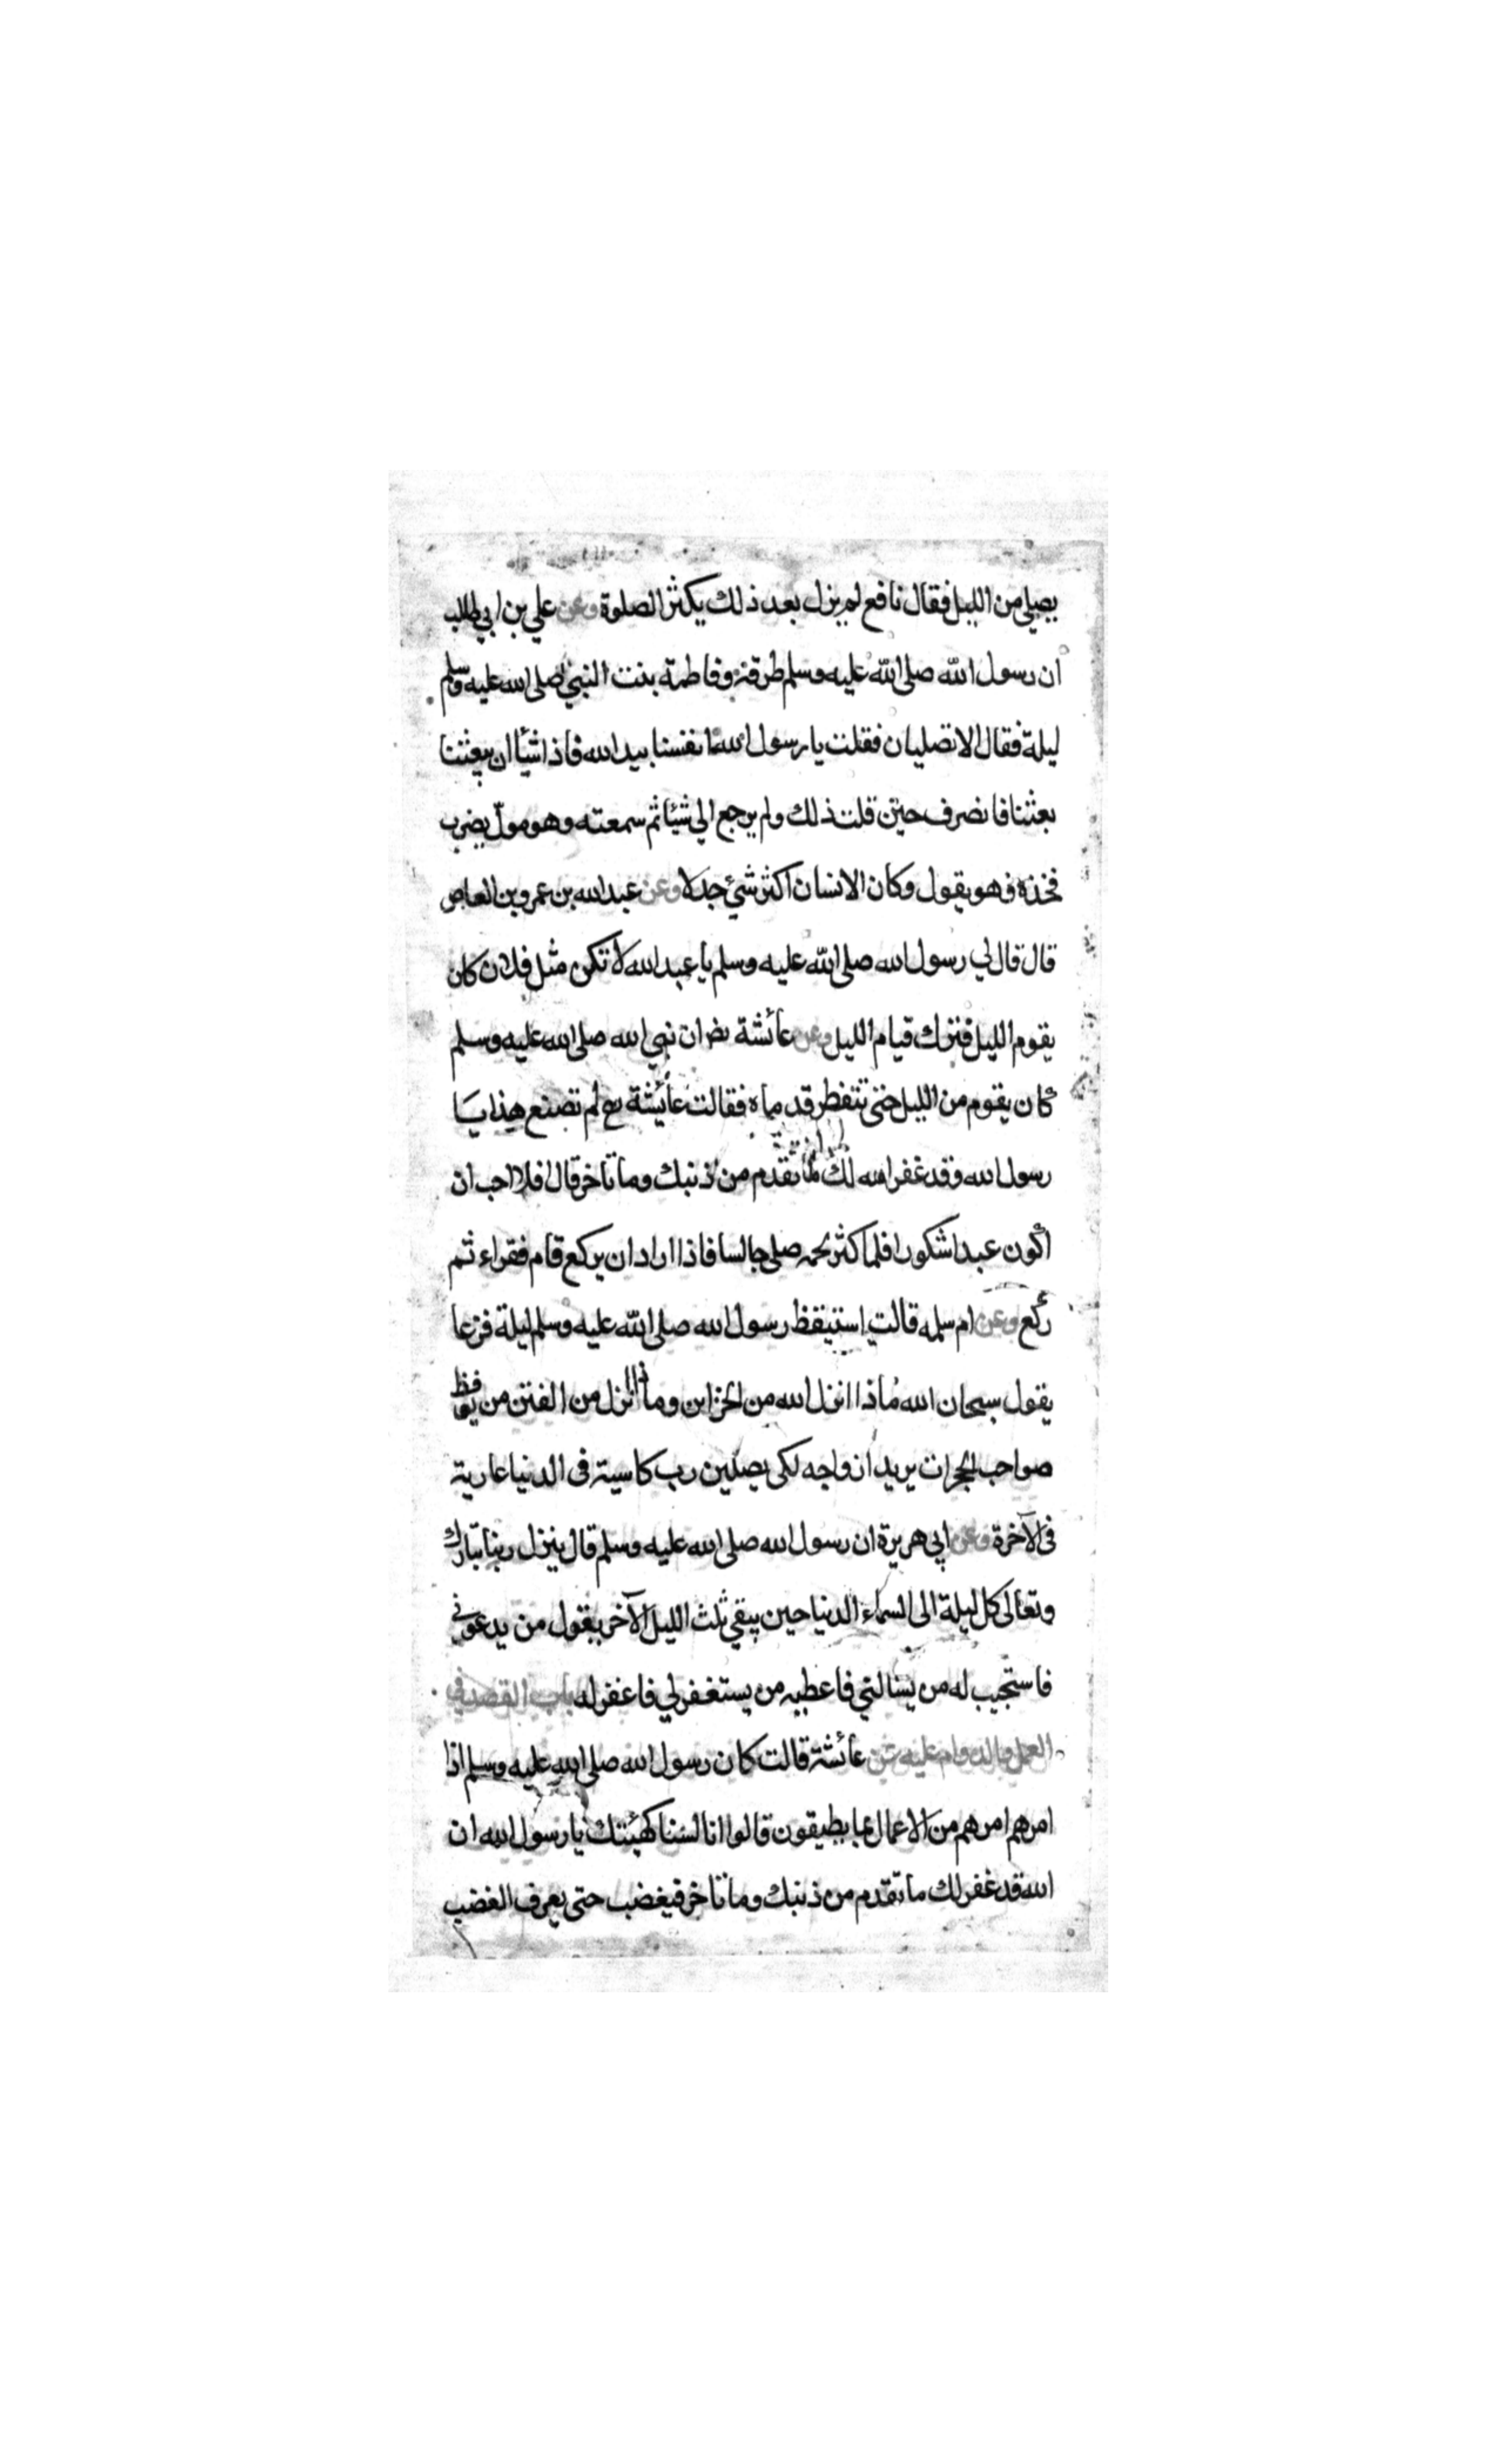 يصلي من الليل فقال نافع لم يزل بعد ذلك يكثر الصلوة وعن علي بن ابي طالب
ان رسول الله صلى الله عليه وسلم طرقه وفاطمة بنت النبي صلى الله عليه وسلم
ليلة فقال الا تصليان فقلت يا رسول الله انفسنا بيد الله فاذا شئا ان يبعثنا
بعثنا فانصرف حين قلت ذلك ولم يرجع الي شيئا ثم سمعته وهو مول يضرب
فخذه فهو يقول وكان الانسان اكثر شيء جدلا وعن عبد الله بن عمرو بن العاص
قال قال لي رسول الله صلى الله عليه وسلم يا عبد الله لا تكن مثل فلان كان
يقوم الليل فترك قيام الليل وعن عائشة ان نبي الله صلى الله عليه وسلم
كان يقوم من الليل حتى تتفطر قدماه فقالت عائشة لم تصنع هذا يا
رسول الله وقد غفر الله لك ما تقدم من ذنبك وما تاخر قال افلا احب ان
اكون عبدا شكورا فلما كثر لحمه صلى جالسا فاذا اراد ان يركع قام فقراء ثم
ركع وعن ام سلمه قالت استيقظ رسول الله صلى الله عليه وسلم ليلة فزعا
يقول سبحان الله ماذا انزل الله من الخزاين وماذا انزل من الفتن من يوقظ
صواحب الحجرات يريد ازواجه لكى يصلين رب كاسية فى الدنيا عارية
فى الآخرة وعن ابي هريرة ان رسول الله صلى الله عليه وسلم قال ينزل ربنا تبارك
وتعالى كل ليلة الى السماء الدنيا حين يبقي ثلث الليل الآخر يقول من يدعوني
فاستجيب له من يسالني فاعطيه من يستغفرلي فاغفر له باب القصد في
العمل والدوام عليه عن عائشة قالت كان رسول الله صلى الله عليه وسلم اذا
امرهم امرهم من الاعمال بما يطيقون قالوا انا لسنا كهيئتك يا رسول الله ان
الله قد غفر لك ما تقدم من ذنبك وما تاخر فيغضب حتى يعرف الغضب